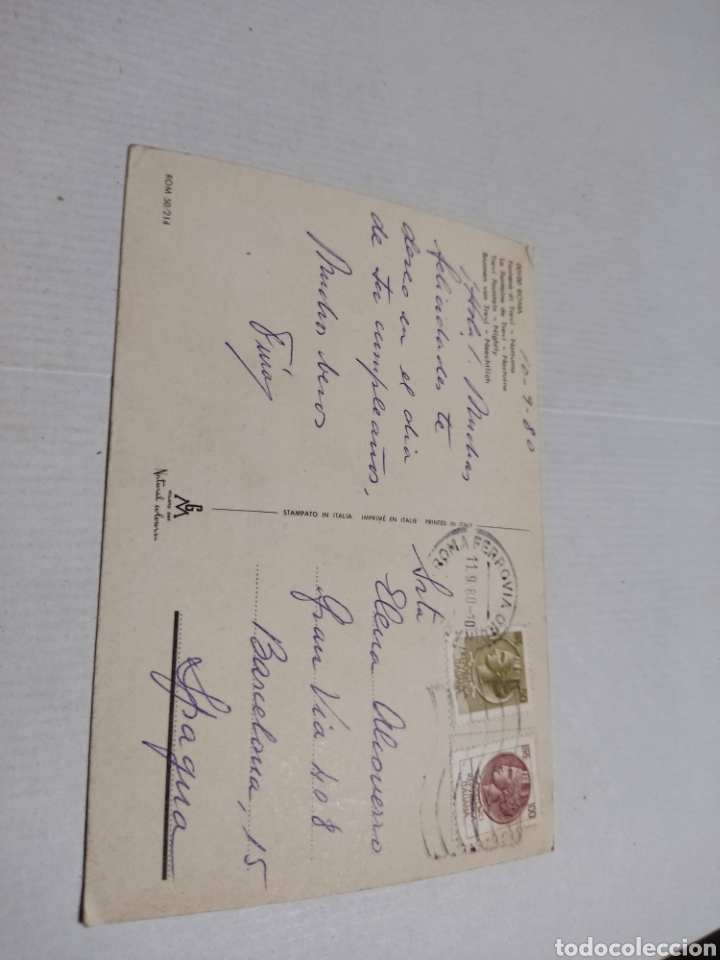 00100 ROMA
Fontana di Trevi - Notturno
La Fontaine de Trevi - Nocturne
Trevi Fountain - Nightly
Brunnen von Trevi - Naechtlich
10-9-80
¡Hola! Muchas
felicidades te
deseo en el dia
de tu cumpleaños,
Muchos besos
ROM 50/214
STAMPATO IN ITALIA IMPRIMÉ EN ITALIE PRINTED IN ITALY
Natural colour
ROMA FERROVIA
11.9.80-10
50
150
ITALIANA
Srta
Elena Alcoverro
Gran Via 408
Barcelona, 15
Spagna
todocoleccion